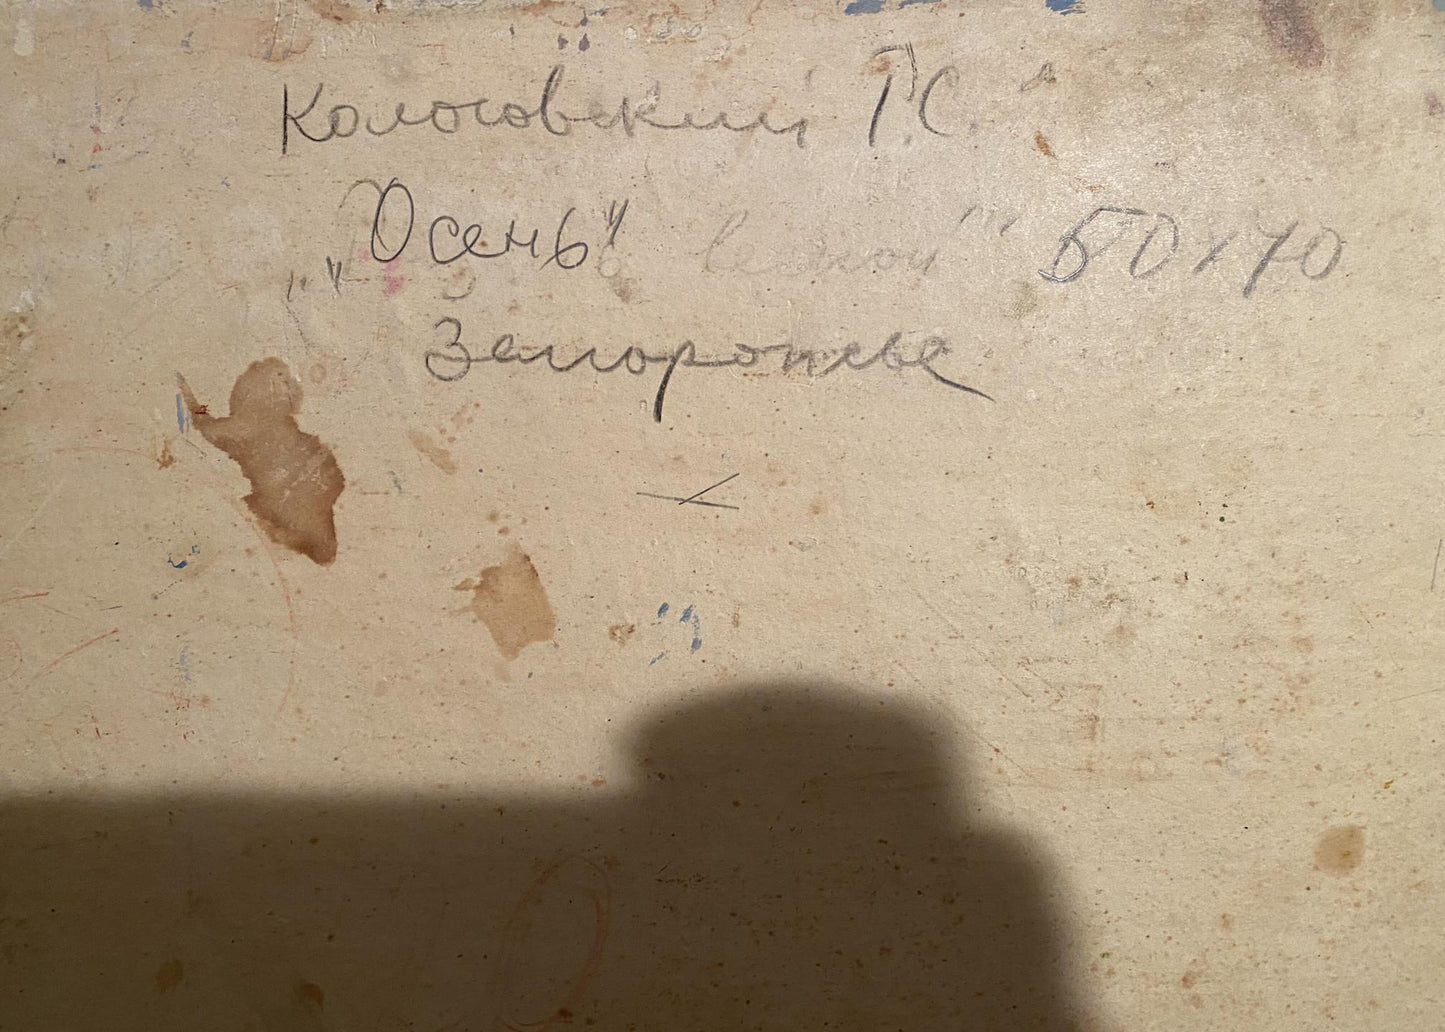 Колосовский Г.С.
„Осень" 50х70
Запорожье